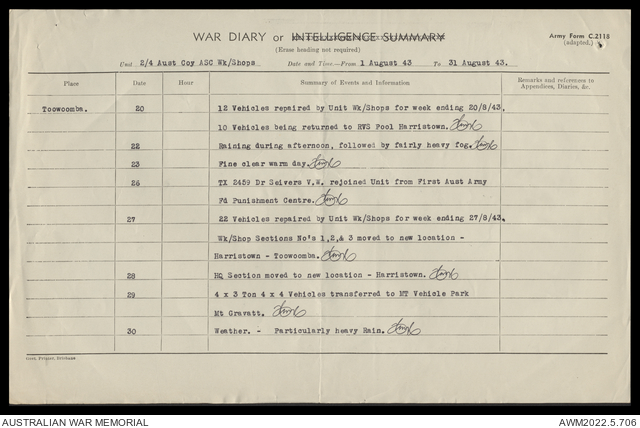 WAR DIARY or INTELLIGENCE SUMMARY
Army Form C.2118
(adapted.)
(Erase heading not required)
Unit 2/4 Aust Coy ASC Wk/Shops Date and Time—From 1 August 43 To 31 August 43.
Place Date Hour Summary of Events and Information Remarks and references to Appendices, Diaries, &c.
Toowoomba. 20 12 Vehicles repaired by Unit Wk/Shops for week ending 20/8/43,
10 Vehicles being returned to RVS Pool Harristown.
22 Raining during afternoon, followed by fairly heavy fog.
23 Fine clear warm day.
26 TX 2459 Dr Seivers V.W. rejoined Unit from First Aust Army
Fd Punishment Centre.
27 22 Vehicles repaired by Unit Wk/Shops for week ending 27/8/43.
Wk/Shop Sections No's 1,2,& 3 moved to new location -
Harristown - Toowoomba.
28 HQ Section moved to new location - Harristown.
29 4 x 3 Ton 4 x 4 Vehicles transferred to MT Vehicle Park
Mt Gravatt.
30 Weather. - Particularly heavy Rain.
Govt. Printer, Brisbane
AUSTRALIAN WAR MEMORIAL
AWM2022.5.706